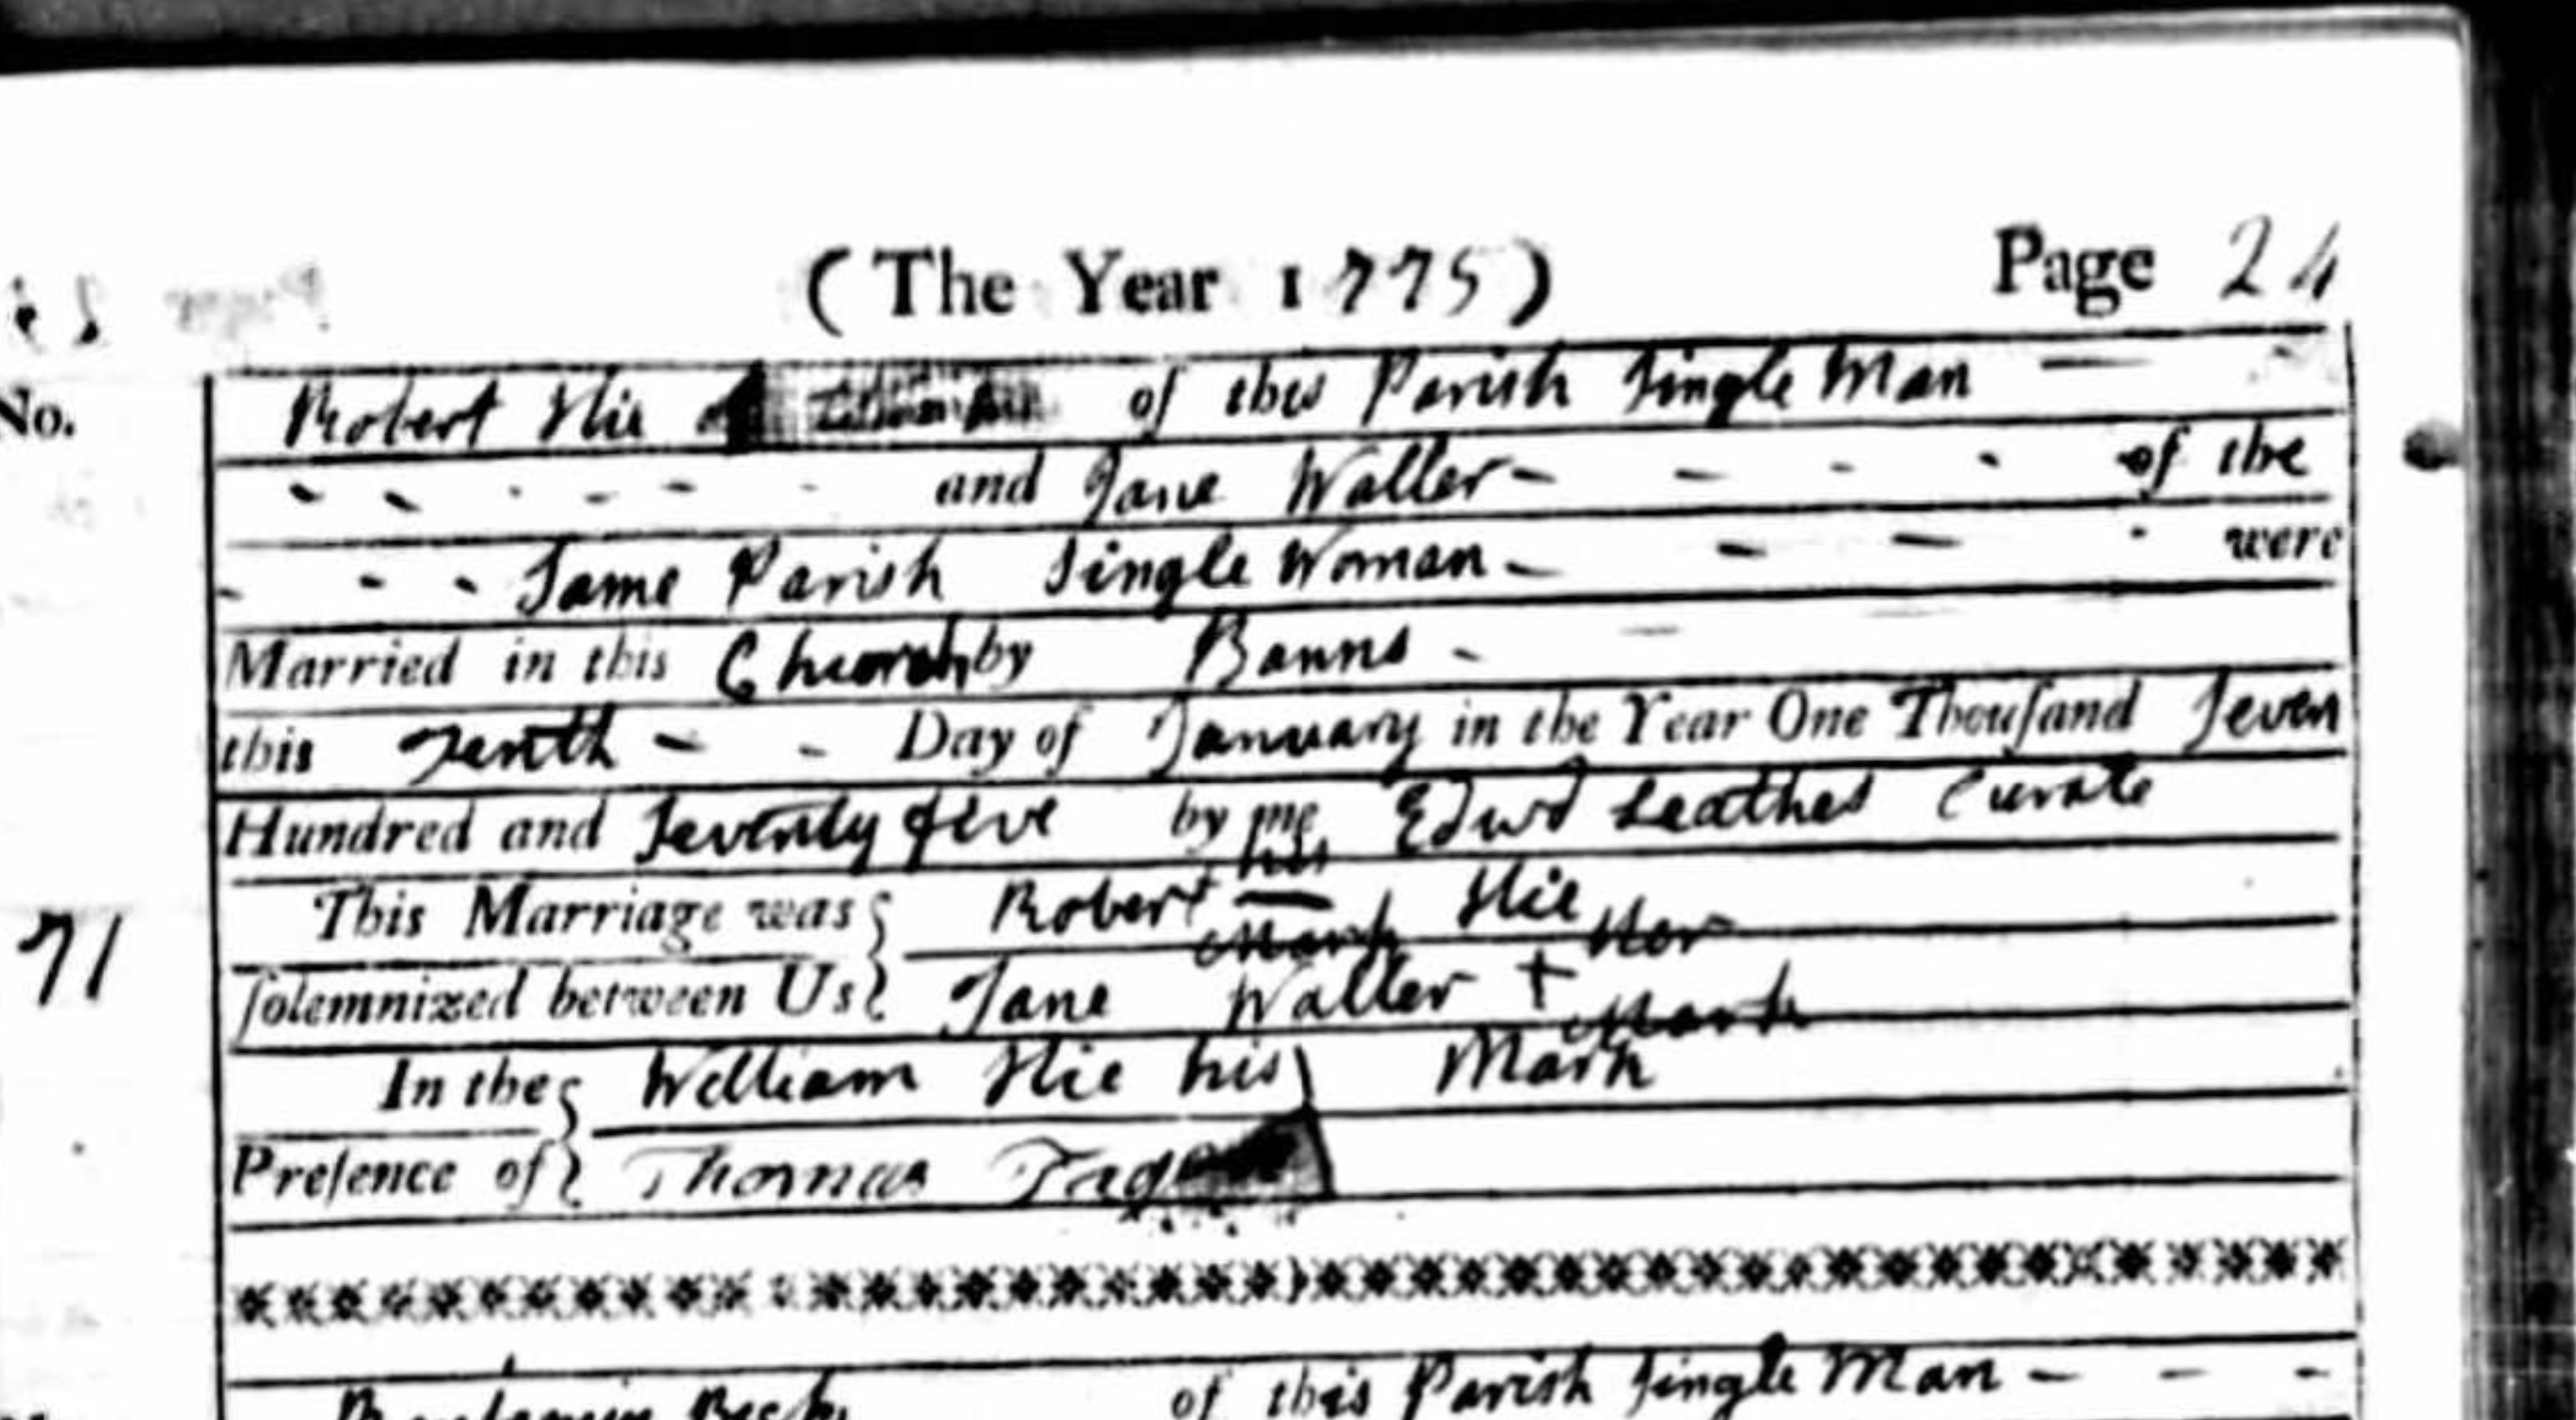 (The Year 1775) Page 24
No.
Robert Hie of of this Parish Single Man —
- - - - - - and Jane Waller - - - - of the
- - - Same Parish Single Woman - - - - were
Married in this Church by Banns -
this Tenth - - Day of January in the Year One Thouſand Seven
Hundred and Seventy five by me Edwd Leathes Curate
his
This Marriage was Robert — Hie
Mark Her
71
ſolemnized between Us Jane Waller +
Mark
In the William Hie his Mark
Preſence of Thomas
Benjamin Beck of this Parish Single Man - - -